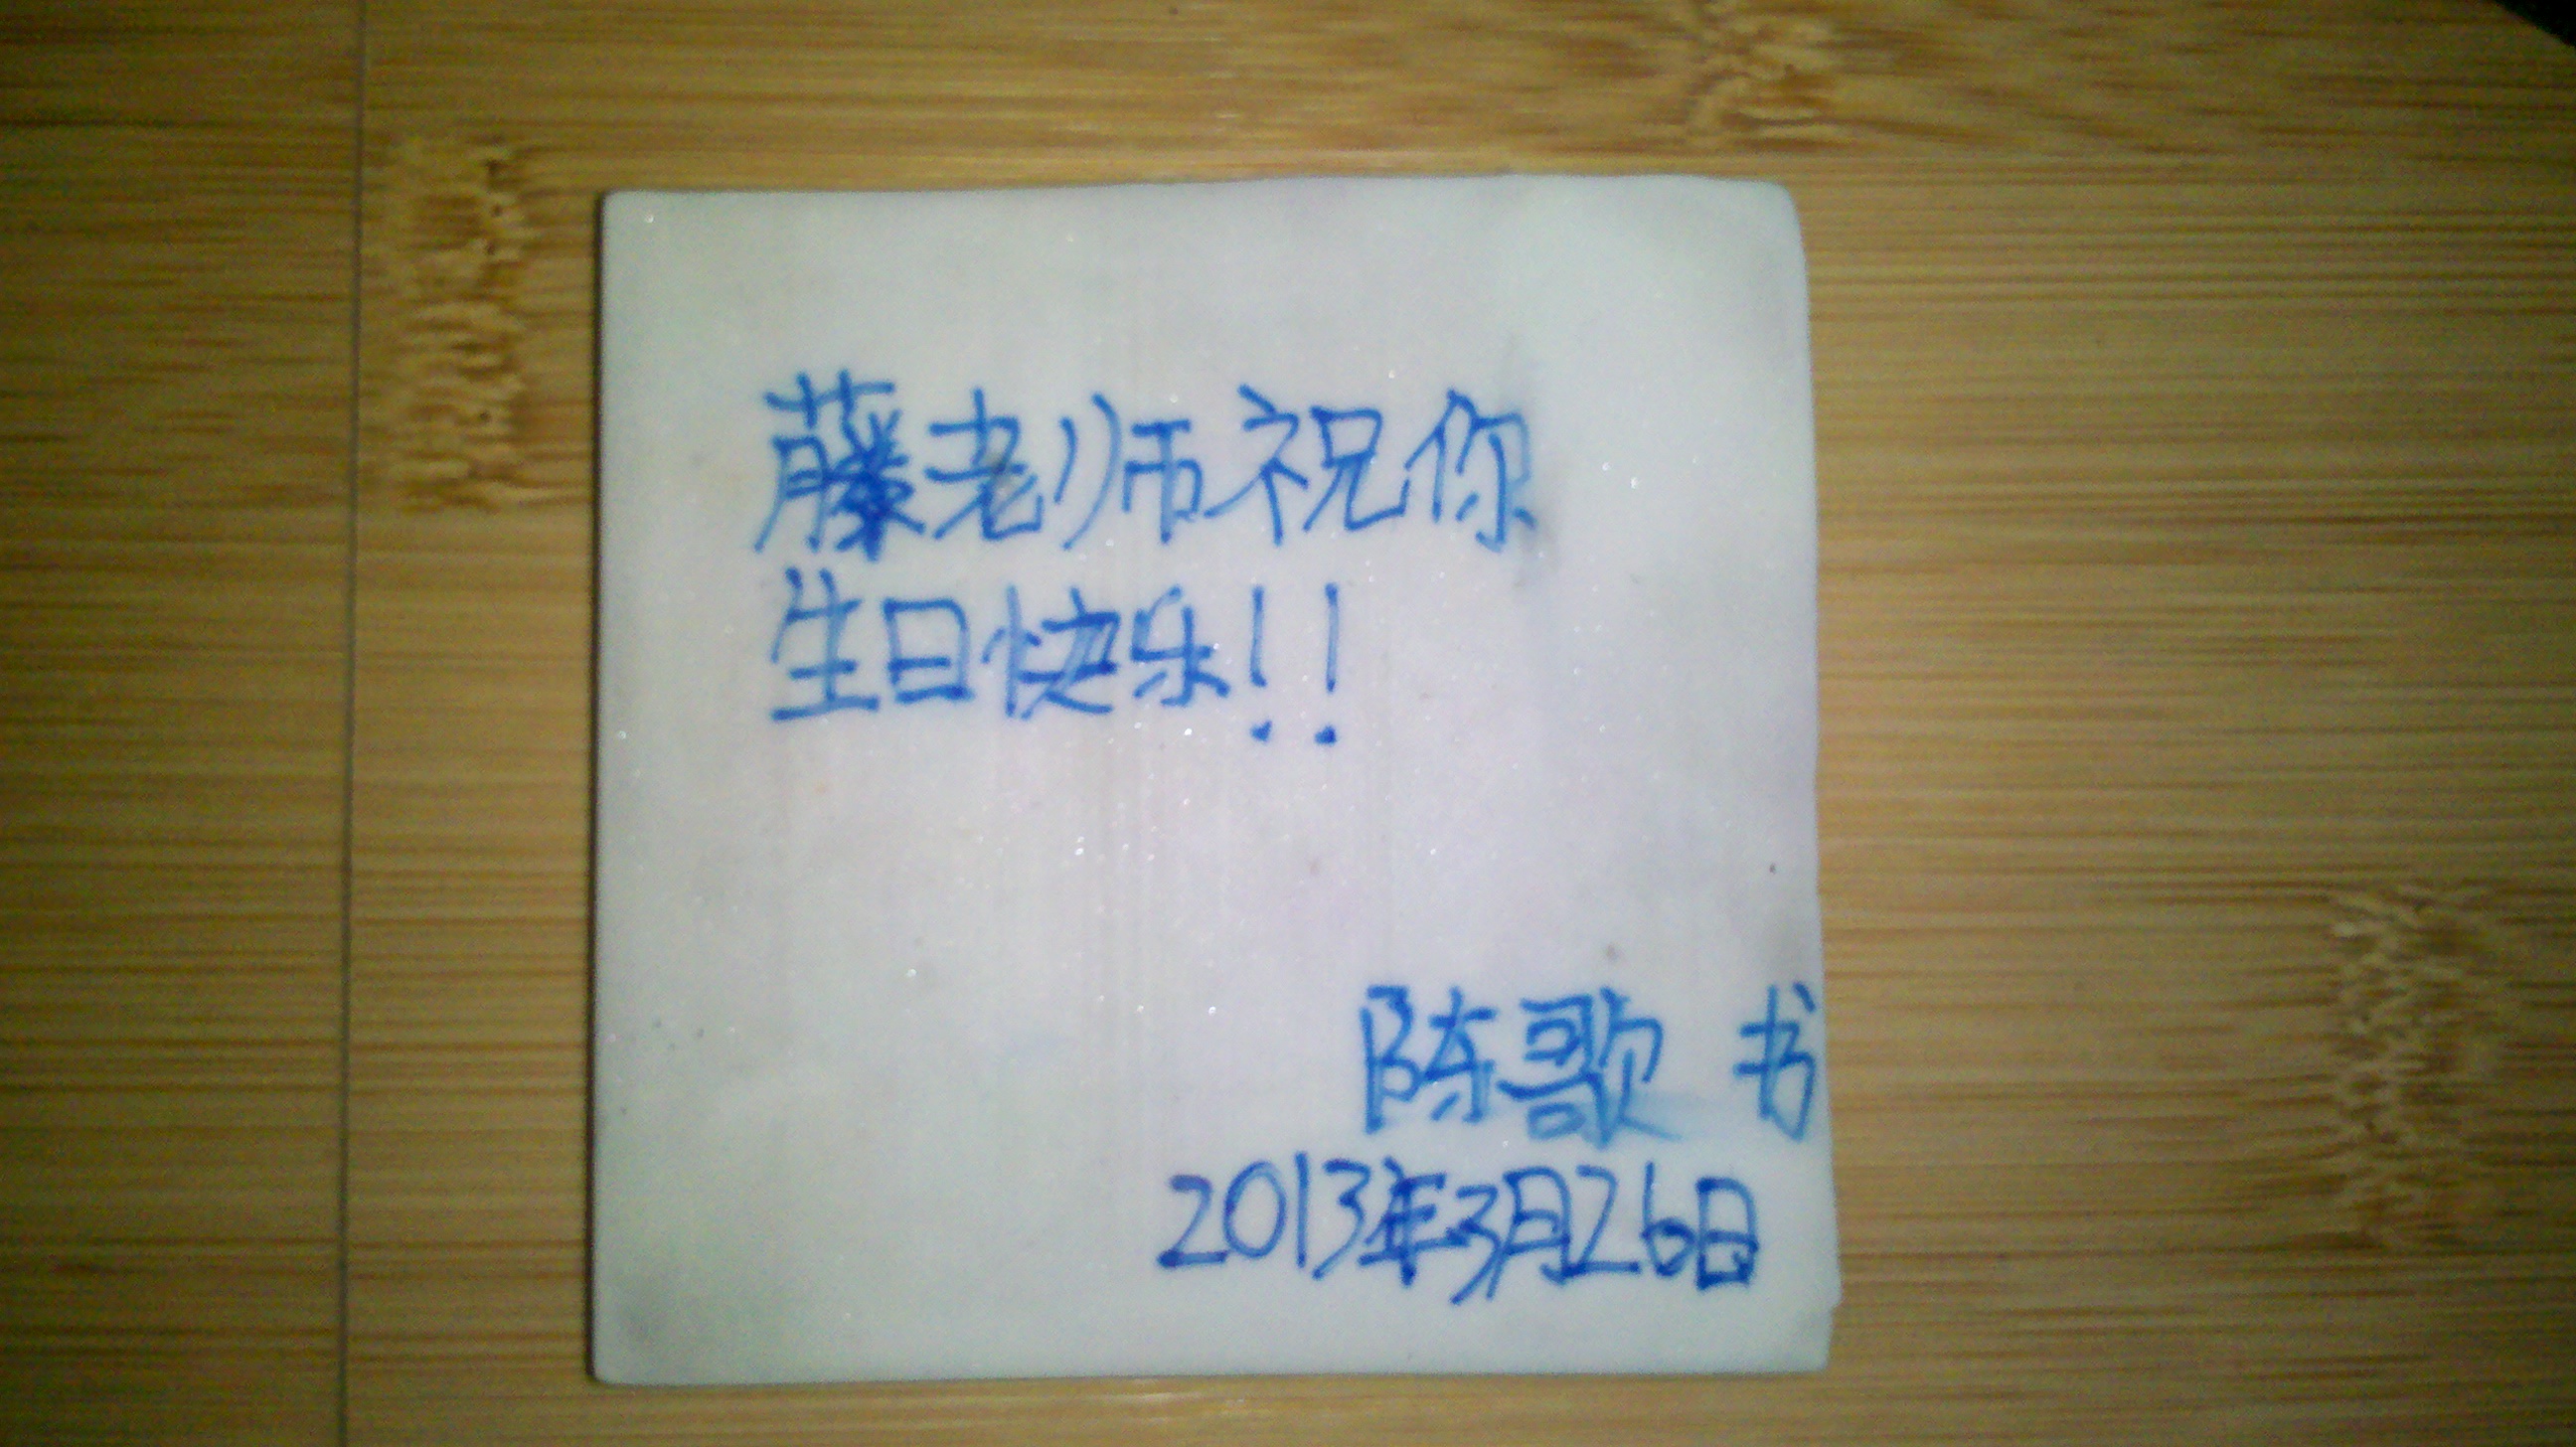 藤老师祝你
生日快乐！！
陈歌 书
2013年3月26日